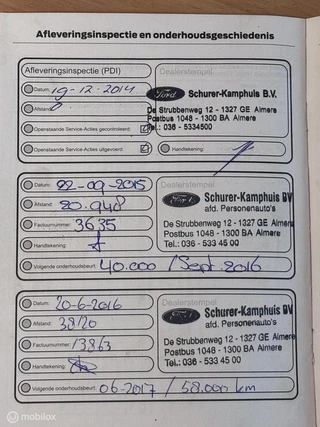 Afleveringsinspectie en onderhoudsgeschiedenis
Afleveringsinspectie (PDI)
Dealerstempel
Datum: 19-12-2014
Ford Schurer-Kamphuis B.V.
Afstand: 0
De Strubbenweg 12 - 1327 GE Almere
Postbus 1048 - 1300 BA Almere
Openstaande Service-Acties gecontroleerd:
Tel.: 036 - 5334500
Openstaande Service-Acties uitgevoerd:
Handtekening:
Datum: 22-09-2015
Dealerstempel
Ford Schurer-Kamphuis BV
afd. Personenauto's
Afstand: 20.948
Factuurnummer: 3635
De Strubbenweg 12 - 1327 GE Almere
Postbus 1048 - 1300 BA Almere
Handtekening:
Tel.: 036 - 533 45 00
Volgende onderhoudsbeurt: 40.000 / Sept. 2016
Datum: 20-6-2016
Dealerstempel
Ford Schurer-Kamphuis BV
afd. Personenauto's
Afstand: 38120
Factuurnummer: 13863
De Strubbenweg 12 - 1327 GE Almere
Postbus 1048 - 1300 BA Almere
Handtekening:
Tel.: 036 - 533 45 00
Volgende onderhoudsbeurt: 06-2017 / 58.000 km
mobilox